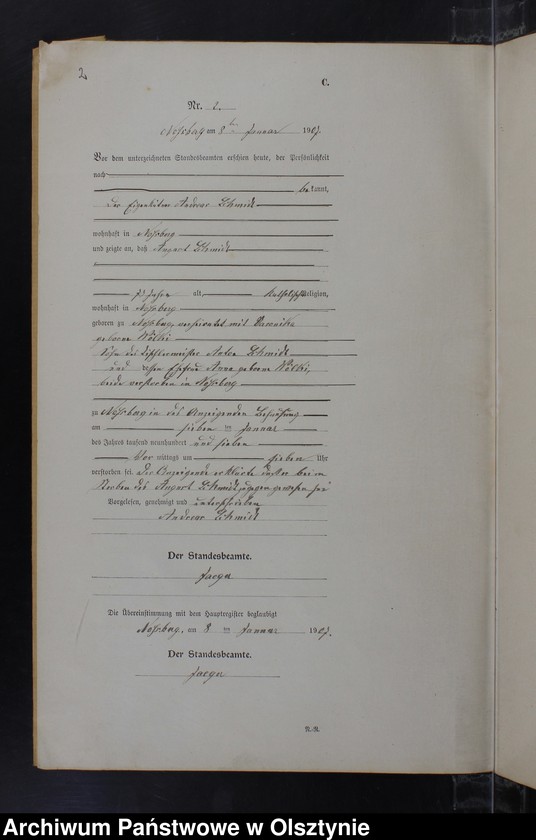 2
C.
Nr. 2.
Noßberg am 8ten Januar 1907.
Vor dem unterzeichneten Standesbeamten erschien heute, der Persönlichkeit
nach
bekannt,
der Eigenkätner Andreas Schmidt
wohnhaft in Noßberg
und zeigte an, daß August Schmidt
Jahre alt, katholischer Religion,
wohnhaft in Noßberg
geboren zu Noßberg, verheiratet mit Veronika
geborene Wölki
Sohn des Tischlermeister Anton Schmidt
und dessen Ehefrau Anna geborene Wölki,
beide verstorben in Noßberg
zu Noßberg in des Anzeigenden Behausung
am sieben ten Januar
des Jahres tausend neunhundert und sieben
Vor mittags um sieben Uhr
verstorben sei. Der Anzeigende erklärte daß er beim
Sterben des August Schmidt zugegen gewesen sei
Vorgelesen, genehmigt und unterschrieben
Andreas Schmidt
Der Standesbeamte.
Die Übereinstimmung mit dem Hauptregister beglaubigt
Noßberg, am 8 ten Januar 1907.
Der Standesbeamte.
Archiwum Państwowe w Olsztynie